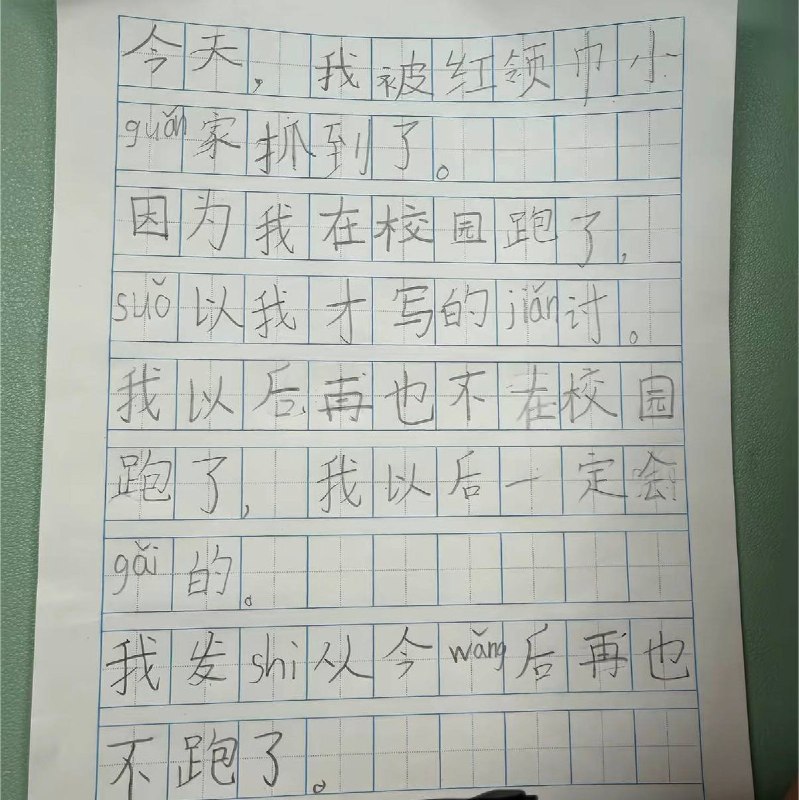 今天，我被红领巾小
guǎn家抓到了。
因为我在校园跑了，
suǒ以我才写的jiǎn讨。
我以后再也不在校园
跑了，我以后一定会
gǎi的。
我发shi从今wǎng后再也
不跑了。